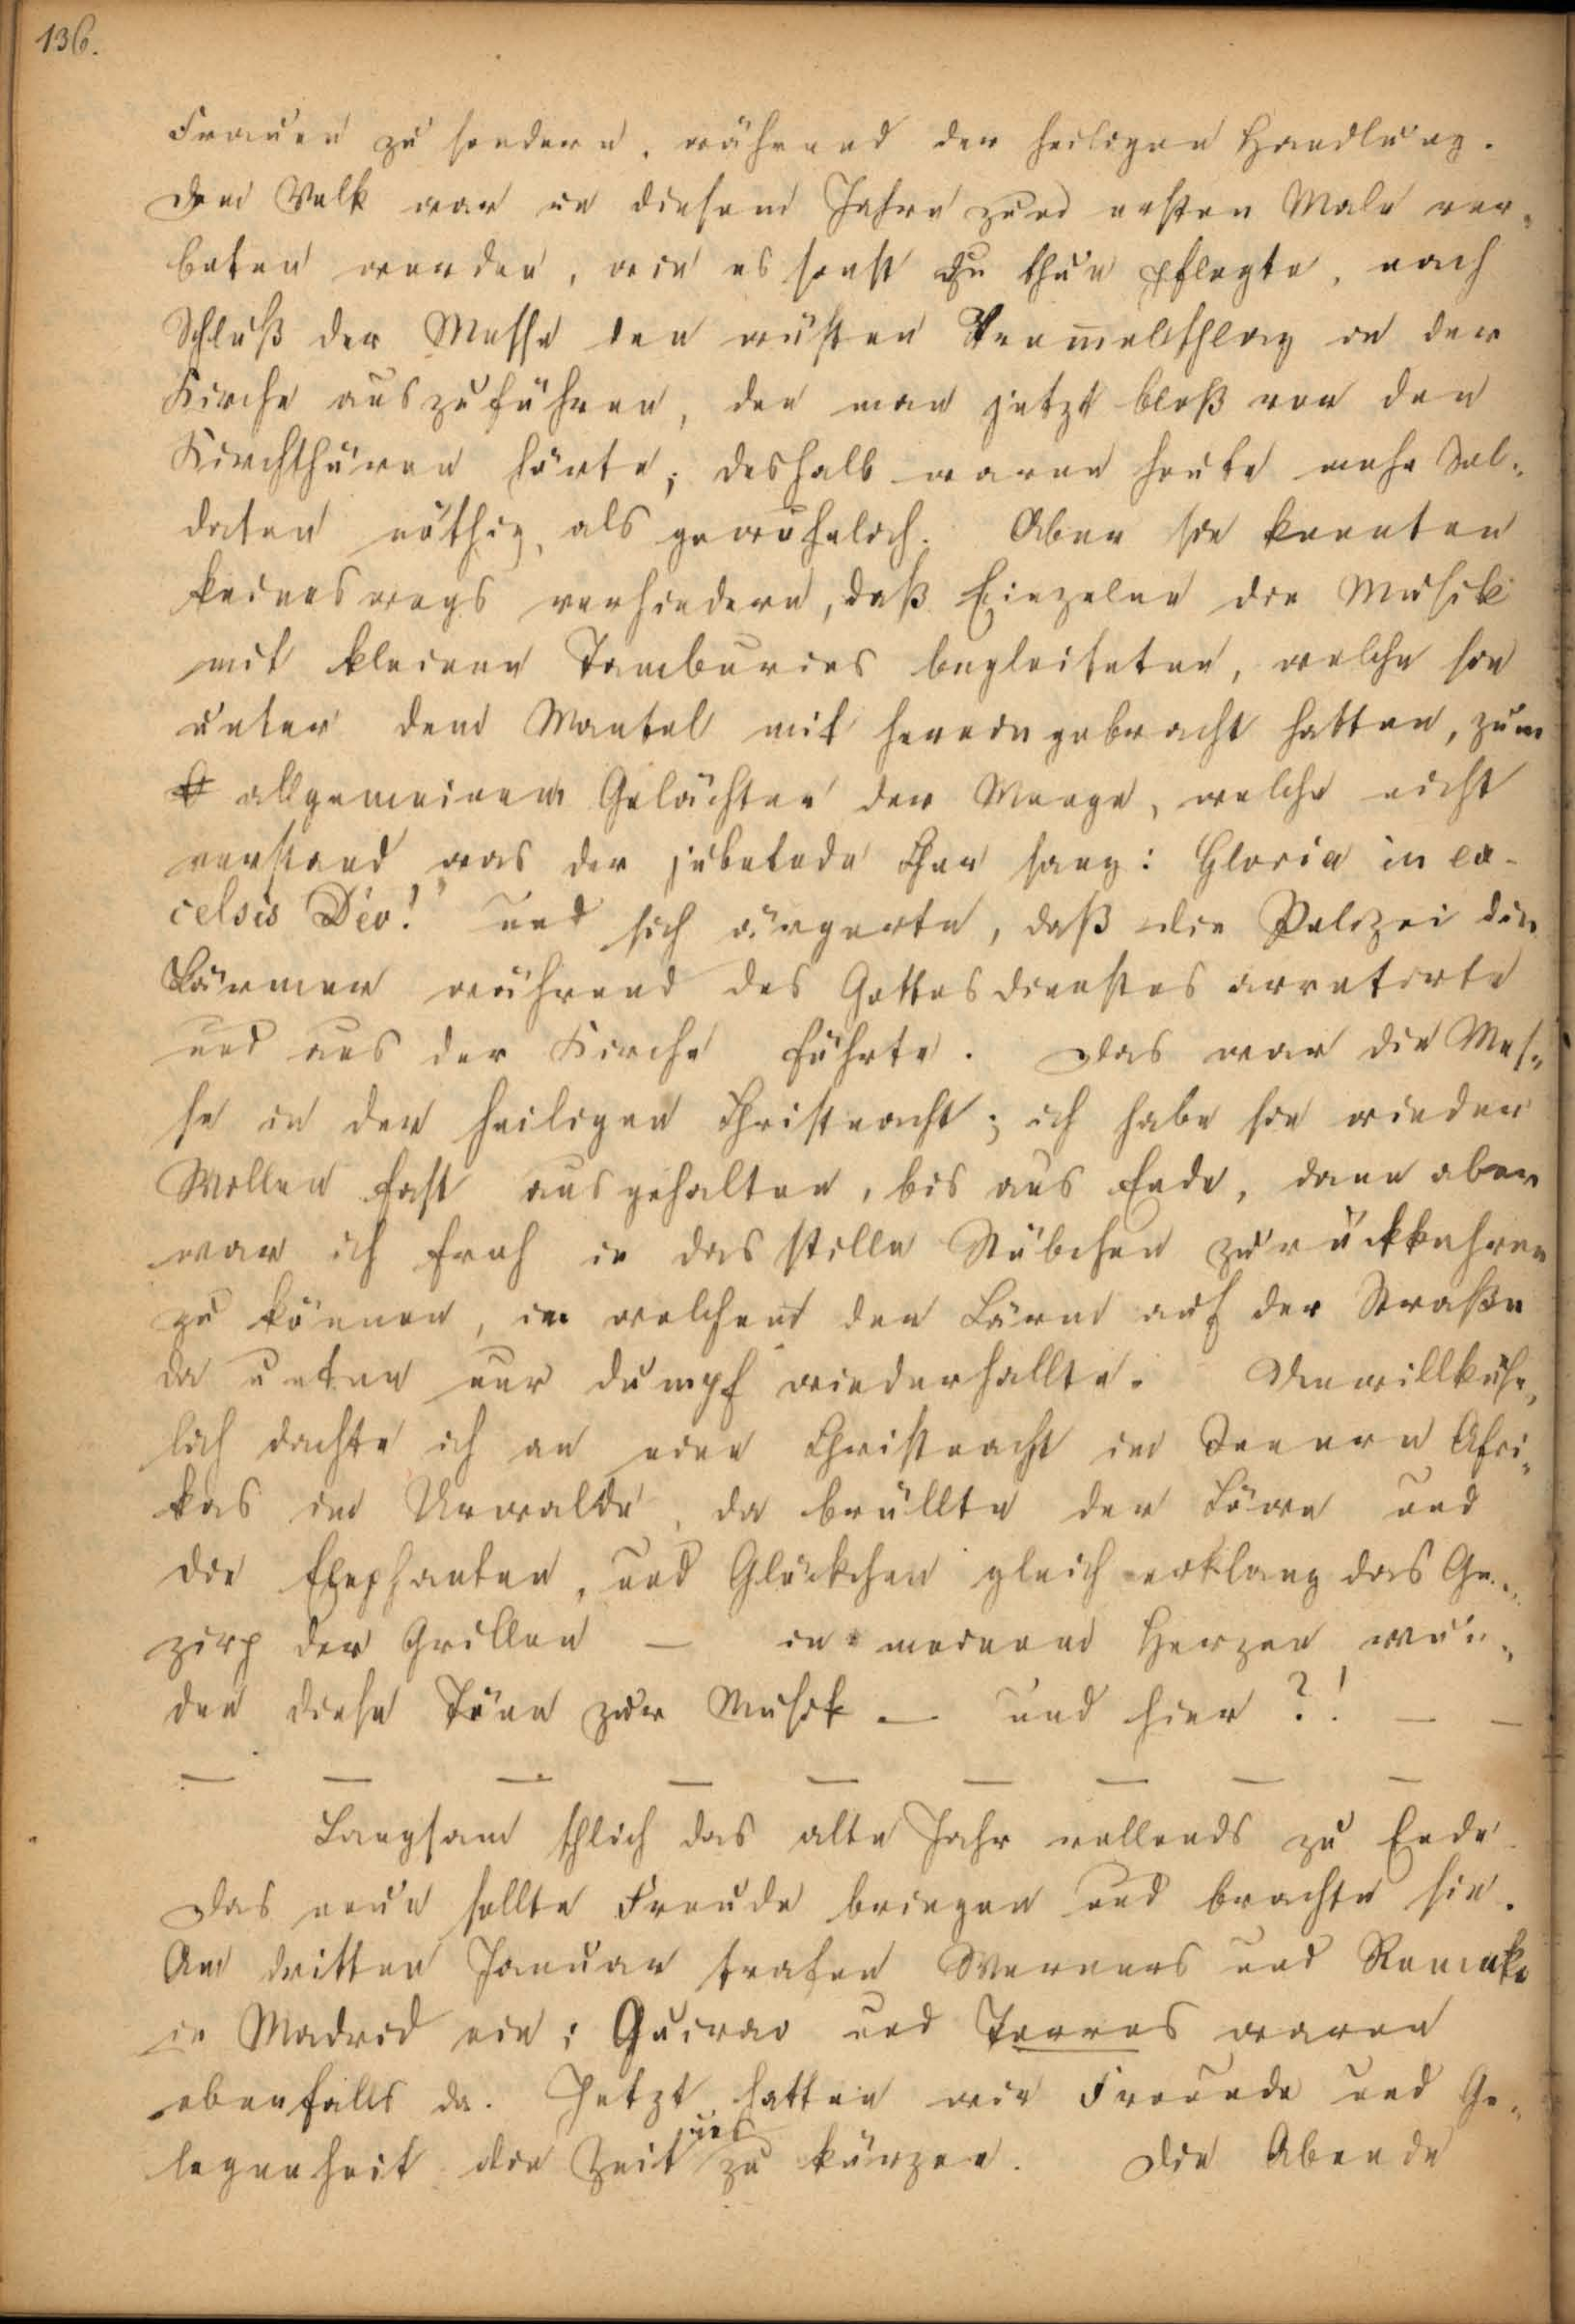 136.
Frauen zu sondern, während der heiligen Handlung.
Dem Volk war in diesem Jahre zum ersten Male ver-
boten worden, wie es sonst zu thun pflegte, nach
Schluß der Messe den wüsten Trom̅elschlag in der
Kirche auszuführen, den man jetzt bloß vor den
Kirchthüren hörte; deshalb waren heute mehr Sol-
daten nöthig, als gewöhnlich. Aber sie konnten
keineswegs verhindern, daß Einzelne die Musik
mit kleinen Tamburins begleiteten, welche sie
unter dem Mantel mit herein gebracht hatten, zum
allgemeinen Gelächter der Menge, welche nicht
verstand was der jubelnde Chor sang: Gloria in ex-
celsis Deo!" und sich ärgerte, daß die Polizei die
Lärmer während des Gottesdienstes arretirte
und aus der Kirche führte. Das war die Mes-
se in der heiligen Christnacht; ich habe sie wieder
Wollen fast ausgehalten, bis ans Ende, dann aber
war ich froh in das stille Stübchen zurückkehren
zu können, in welchem der Lärm auf der Straße
da unten nur dumpf wiederhallte. Unwillkühr-
lich dachte ich an eine Christnacht im Innern Afri-
kas im Urwalde, da brüllte der Löwe und
die Elephanten, und Glöckchen gleich erklang das Ge-
zirp der Grillen — in meinem Herzen wur-
den diese Töne zur Musik — und hier?! — —
— — — — — — — — —
Langsam schlich das alte Jahr vollends zu Ende.
Das neue sollte Freude bringen und brachte sie.
Am dritten Januar trafen Werners und
in Madrid ein; Guirao und Torres waren
ebenfalls da. Jetzt hatten wir Freunde und Ge-
legenheit die Zeit uns zu kürzen. Die Abende